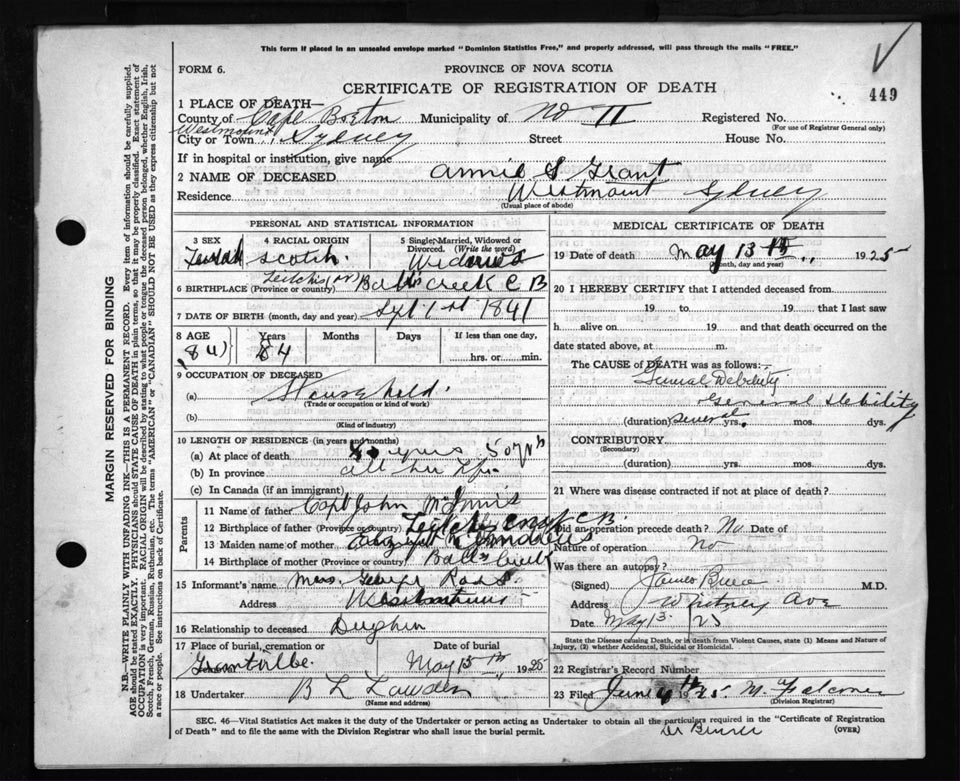 This form if placed in an unsealed envelope marked "Dominion Statistics Free," and properly addressed, will pass through the mails "FREE."
FORM 6.
PROVINCE OF NOVA SCOTIA
CERTIFICATE OF REGISTRATION OF DEATH
449
1 PLACE OF DEATH—
County of Cape Breton Municipality of No II Registered No.
(For use of Registrar General only)
Westmount
City or Town Sydney Street House No.
If in hospital or institution, give name
2 NAME OF DECEASED Annie S. Grant
Residence Westmount Sydney
(Usual place of abode)
PERSONAL AND STATISTICAL INFORMATION
3 SEX 4 RACIAL ORIGIN 5 Single, Married, Widowed or Divorced. (Write the word)
Female Scotch Widowed
6 BIRTHPLACE (Province or country) Balls Creek C B
7 DATE OF BIRTH (month, day and year) Sept 1st 1841
8 AGE Years Months Days If less than one day,
(84) 84 hrs. or min.
9 OCCUPATION OF DECEASED
(a) Household
(Trade or occupation or kind of work)
(b)
(Kind of industry)
10 LENGTH OF RESIDENCE (in years and months)
(a) At place of death years 50 yrs
(b) In province all her life
(c) In Canada (if an immigrant)
Parents
11 Name of father Capt John McInnis
12 Birthplace of father (Province or country) C B.
13 Maiden name of mother
14 Birthplace of mother (Province or country) Balls Creek
15 Informant's name Mrs George Ross
Address Westmount
16 Relationship to deceased
17 Place of burial, cremation or Date of burial
May 15th 1925
18 Undertaker B L
(Name and address)
MEDICAL CERTIFICATE OF DEATH
19 Date of death May 13th 1925
(Month, day and year)
20 I HEREBY CERTIFY that I attended deceased from
19 to 19 that I last saw
h alive on 19 and that death occurred on the
date stated above, at m.
The CAUSE of DEATH was as follows:
General Debility
General Debility
(duration) several yrs. mos. dys.
CONTRIBUTORY
(Secondary)
(duration) yrs. mos. dys.
21 Where was disease contracted if not at place of death?
Did an operation precede death? No Date of
Nature of operation No
Was there an autopsy?
(Signed) James M.D.
Address Whitney Ave
Date May 13 25
State the Disease causing Death, or in death from Violent Causes, state (1) Means and Nature of Injury, (2) whether Accidental, Suicidal or Homicidal.
22 Registrar's Record Number
23 Filed June 25 M. Falconer
(Division Registrar)
SEC. 46—Vital Statistics Act makes it the duty of the Undertaker or person acting as Undertaker to obtain all the particulars required in the "Certificate of Registration
of Death" and to file the same with the Division Registrar who shall issue the burial permit.
(OVER)
MARGIN RESERVED FOR BINDING
N.B.—WRITE PLAINLY WITH UNFADING INK—THIS IS A PERMANENT RECORD. Every item of information should be carefully supplied.
AGE should be stated EXACTLY. PHYSICIANS should STATE CAUSE OF DEATH in plain terms, so that it may be properly classified. Exact statement of
OCCUPATION is very important. RACIAL ORIGIN will be described by stating to what people or tongue the deceased person belonged, whether English, Irish,
Scotch, French, German, Russian, Ruthenian, etc. The terms "AMERICAN" or "CANADIAN" SHOULD NOT BE USED as they express citizenship but not
a race or people. See instructions on back of Certificate.